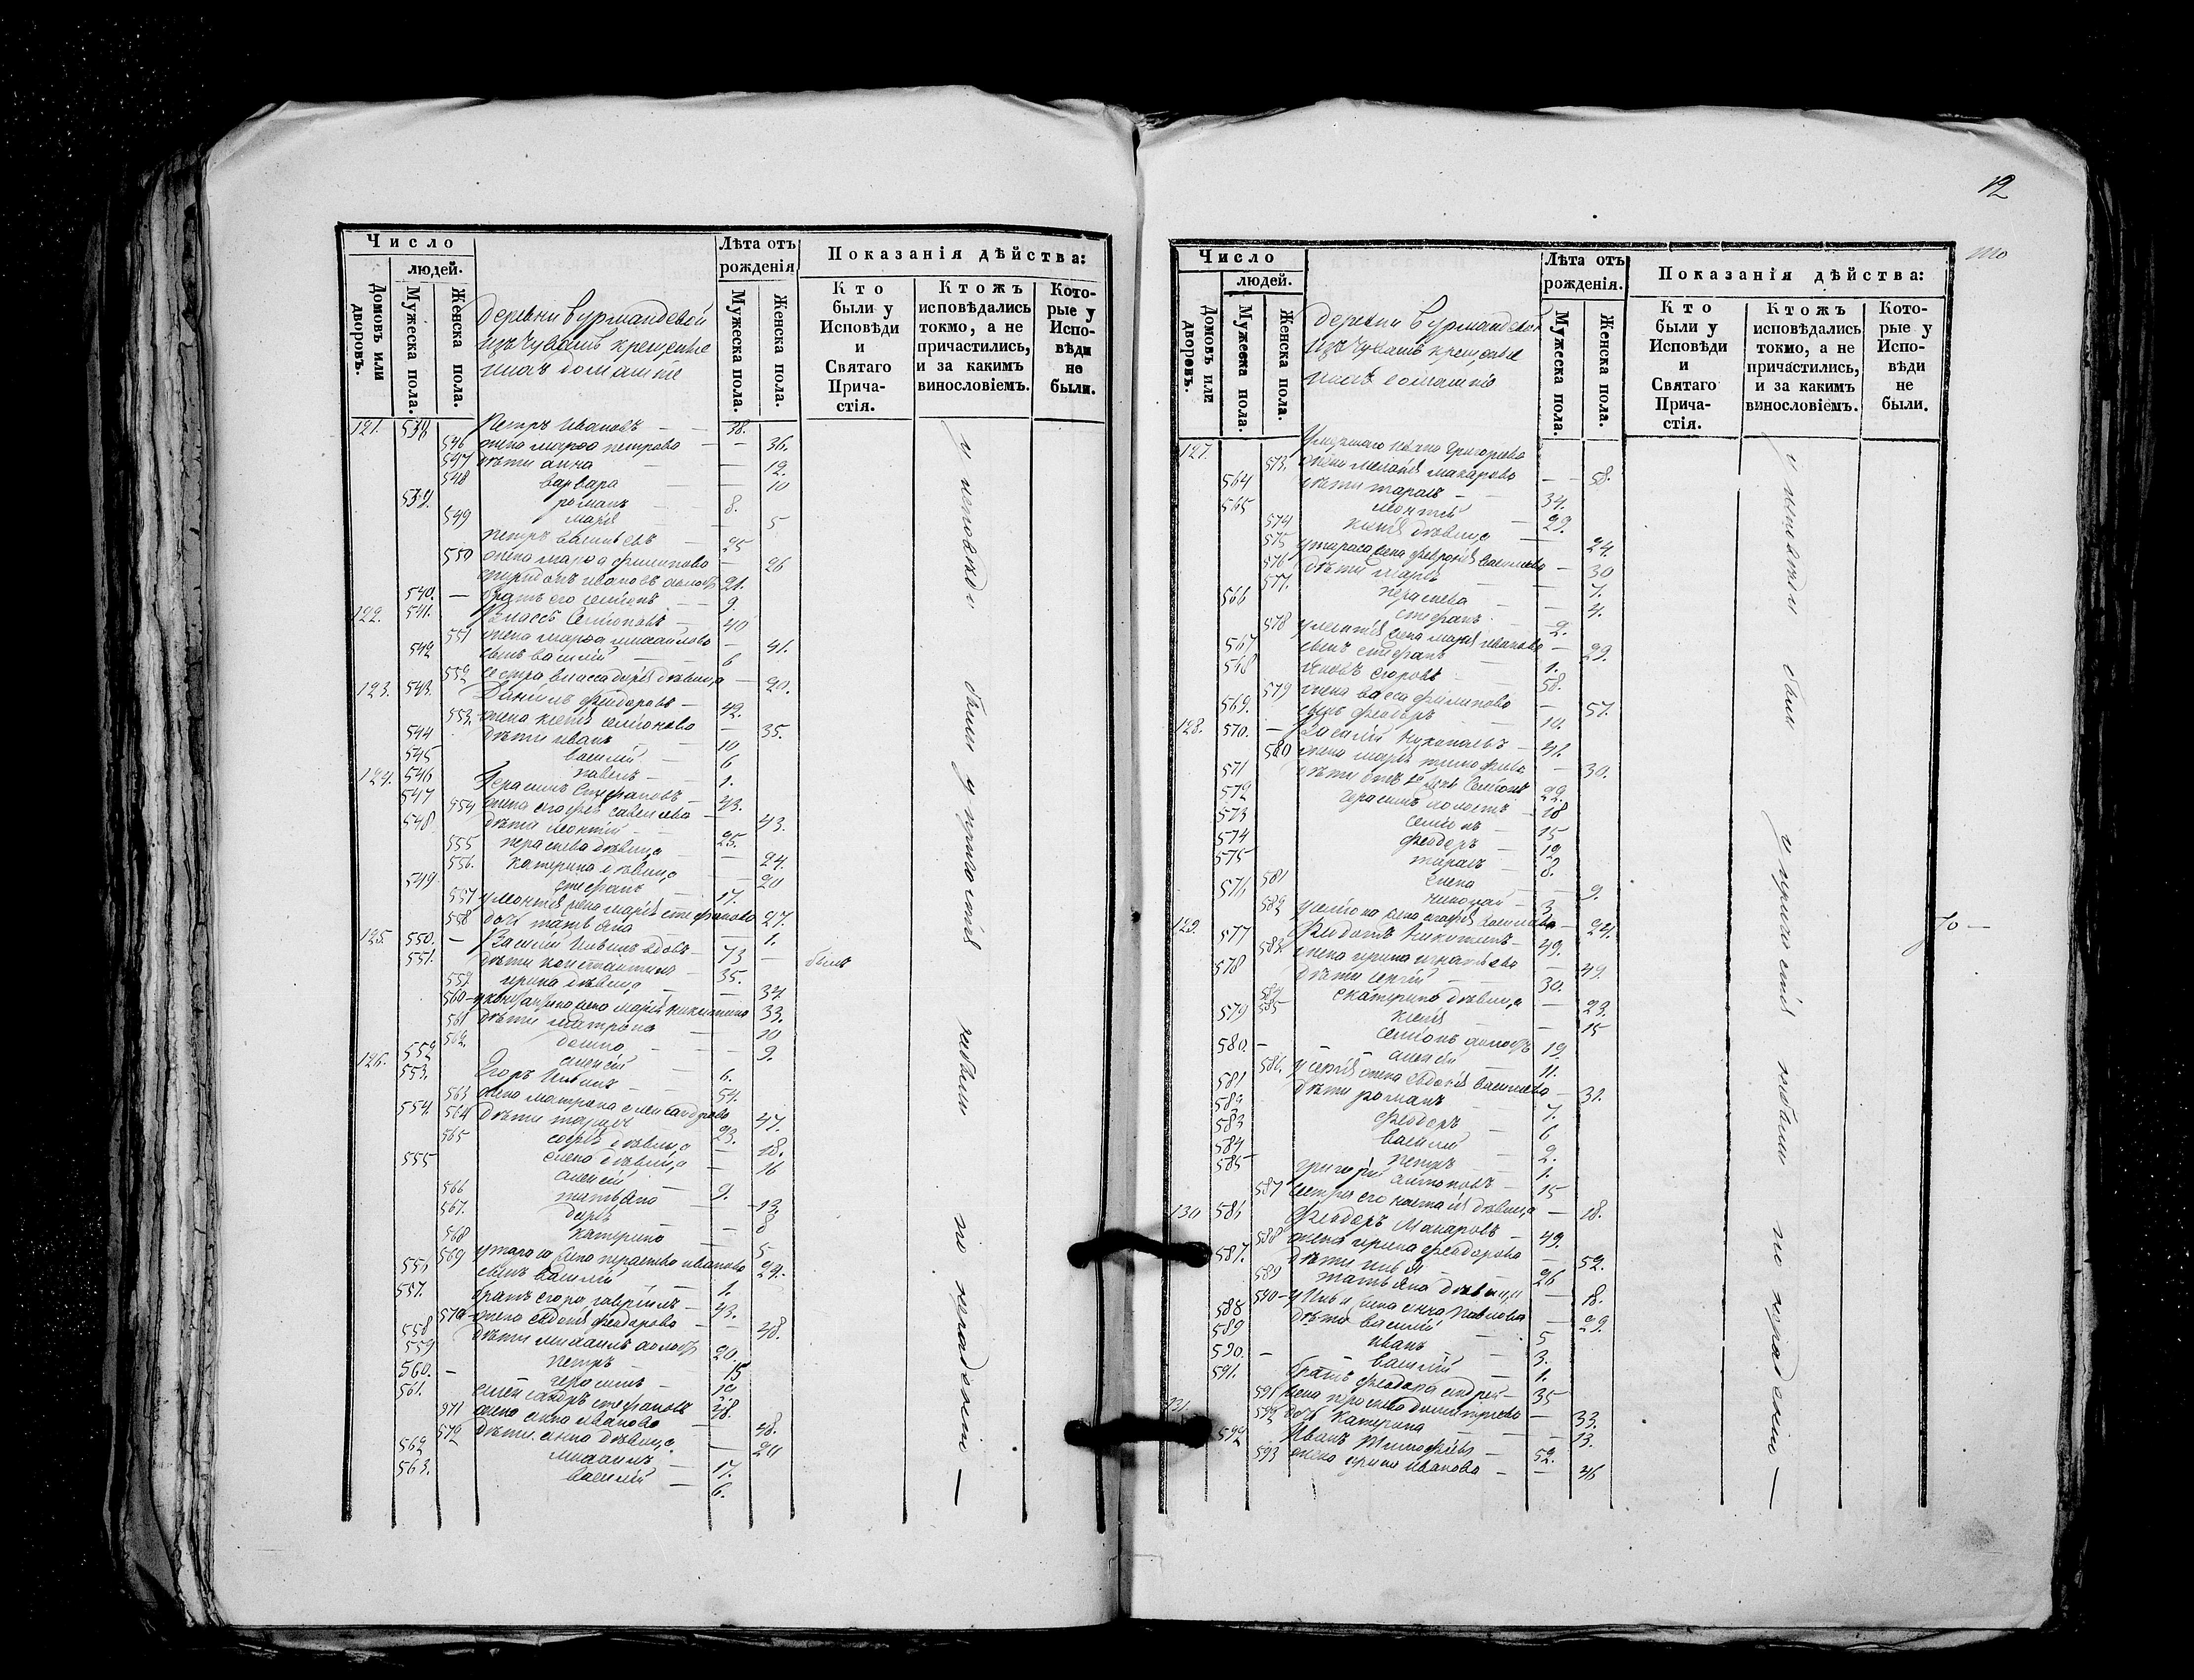 Число
людей.
Домовъ или дворовъ.
Мужеска пола.
Женска пола.
Деревни Бурмандевой
изъ Чувашъ крещеные
Лѣта отъ рожденія
Мужеска пола.
Женска пола.
Показанія дѣйства:
Кто были у Исповѣди и Святаго Прича-стія.
Ктожъ исповѣдались токмо, а не причастились, и за какимъ винословіемъ.
Кото-рые у Испо-вѣди не были.
121. 538 Петръ Ивановъ 38.
546 жена марѳа петрова 36.
547 дѣти анна 12.
548 варвара 10
539. романъ 8.
549 марія 5
петръ васильевъ 25
550 жена марѳа филипова 26
спиридонъ ивановъ холостъ 21.
540. братъ его семенъ 9.
122. 541. Власъ Семеновъ 40
551 жена марѳа михайлова 41.
542 сынъ василій 6
552 сестра власа дарія дѣвица 20.
123. 543. Данилъ Феодоровъ 42.
553. жена ксенія семенова 35.
544 дѣти иванъ 10
545 василій 6
павелъ 1.
124. 546 Герасимъ Стефановъ 43.
547 554 жена савельева 43.
548 дѣти леонтій 25.
555 параскева дѣвица 24.
556. катерина дѣвица 20
549 стефанъ 17.
557 у леонтія жена марія стефанова 27.
558 дочь татьяна 1.
125. 550. Василій Ильинъ вдовъ 73 былъ
551. дѣти константинъ 35.
559. ирина дѣвица 34.
560 у константина жена марія 33.
561 дѣти матрона 10
562. домна 9.
552 алексій 6.
126. 553. Егоръ Ильинъ 54.
563 жена матрона александрова 47.
554. 564 дѣти тарасъ 23.
565 софія дѣвица 18.
елена дѣвица 16
555 алексій 9.
566 татьяна 13.
567. дарія 8
568 катерина 5
569 у тараса жена параскева иванова 24.
556 сынъ василій 1.
557. братъ егора гавріилъ 43.
570 жена евдокія феодорова 48.
558 дѣти михаилъ холостъ 20.
559 петръ 15
560. герасимъ 10
561. александръ стефановъ 48.
571 жена анна иванова 48.
572 дѣти анна дѣвица 20
562 михаилъ 17.
563. василій 6.
у исповѣди были у причастія небыли по нерадѣнію —
12
Число
людей.
Домовъ или дворовъ.
Мужеска пола.
Женска пола.
Деревни Бурмандевой
изъ Чувашъ крещеные
Лѣта отъ рожденія.
Мужеска пола.
Женска пола.
Показанія дѣйства:
Кто были у Исповѣди и Святаго Прича-стія.
Ктожъ исповѣдались токмо, а не причастились, и за какимъ винословіемъ.
Кото-рые у Испо-вѣди не были.
127. Умершаго Григорьева
573. жена меланія макарова 58.
564 дѣти тарасъ 34.
565 леонтій 29.
574 ксенія дѣвица 24.
575 у тараса жена февронія васильева 30
576 дѣти марія 7.
577. параскева 4.
566 стефанъ 2.
578 у леонтія жена марія иванова 29.
567 сынъ стефанъ 1.
568 яковъ егоровъ 58.
579 жена васса филипова 57.
569. сынъ феодоръ 14.
128. 570. Василій 41.
580 жена марія тимофеева 30.
571 дѣти отъ 1й жены Семенъ 22.
572 герасимъ холостъ 18
573 семенъ 15
574 феодоръ 12
575 тарасъ 8.
581 елена 9.
576 николай 3.
582 у семена жена васильева 24.
129. 577 Федотъ 49.
583. жена ирина игнатьева 49.
578 дѣти сергій 30.
584 екатерина дѣвица 23.
585 ксенія 15
579 семенъ холостъ 19.
580. алексій 11.
586. у сергія жена евдокія васильева 31.
581 дѣти романъ 7.
582 феодоръ 6
583 василій 2.
584 петръ 1.
585 григорій антоновъ 15
587 сестра его наталія дѣвица 18.
130 586 Феодоръ Макаровъ 49.
588 жена ирина феодорова 52.
587. дѣти илья 26
589 татьяна дѣвица 18.
590 у ильи жена анна павлова 29.
588 дѣти василій 5
589 иванъ 3.
590. василій 1.
591. братъ феодора андрей 35
591 жена димитріева 33.
592 дочь катерина 13.
131. 592 Иванъ Тимофеевъ 52.
593 жена ирина иванова 46
у исповѣди были у причастія небыли по нерадѣнію —